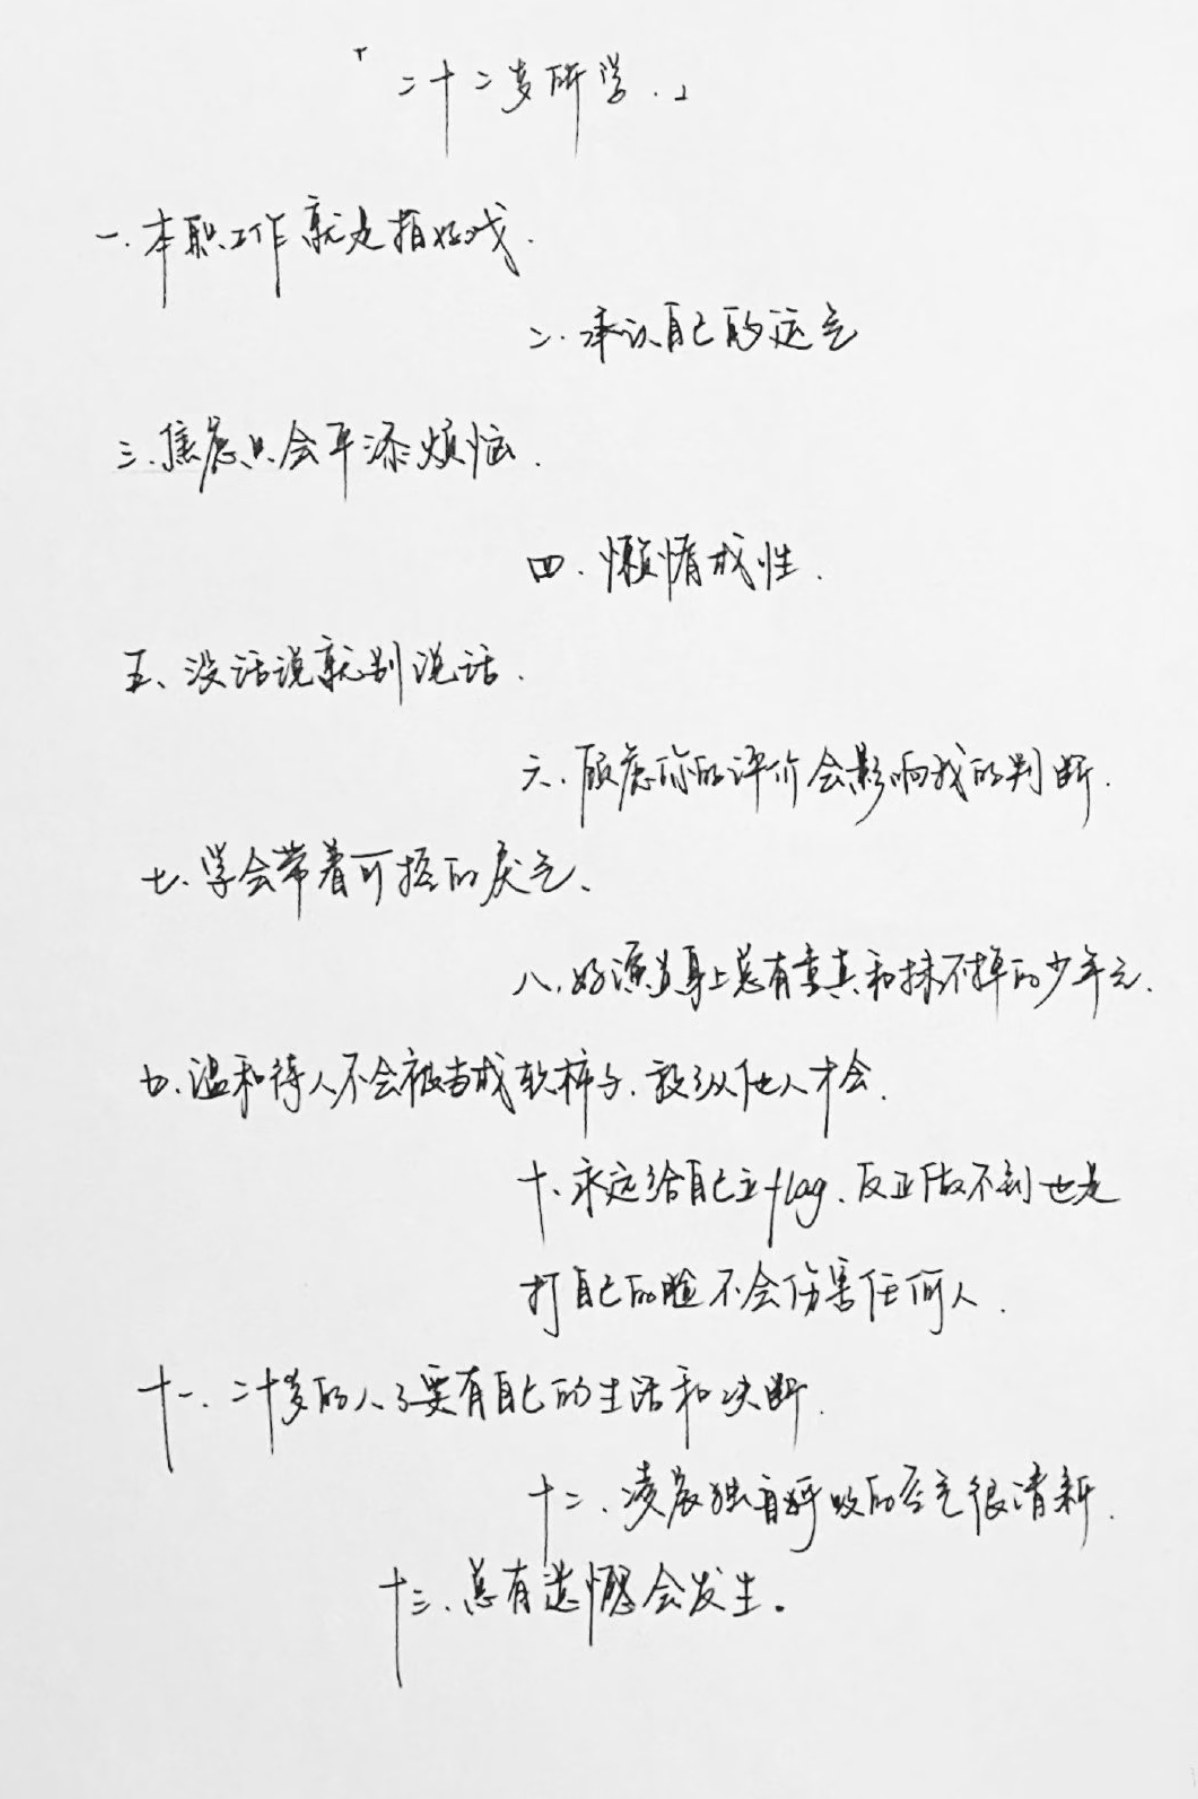 「二十二岁所学.」
一.本职工作就是拍好戏.
二.承认自己的运气
三.焦虑只会平添烦恼.
四.懒惰成性.
五、没话说就别说话.
六、顾虑你的评价会影响我的判断.
七、学会带着可控的戾气、
八、好演员身上总有童真和抹不掉的少年元.
九、温和待人不会被当成软柿子.放纵他人才会.
十、永远给自己立flag、反正做不到也是
打自己的脸不会伤害任何人.
十一、二十岁的人了要有自己的生活和决断.
十二、凌晨独自呼吸的空气很清新.
十三、总有遗憾会发生。